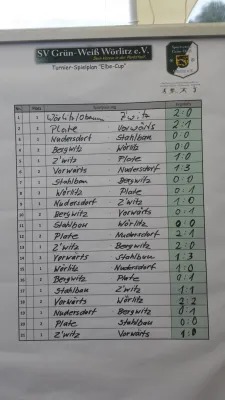 SV Grün-Weiß Wörlitz e.V.
Turnier-Spielplan "Elbe-Cup"
Platz Ergebnis
1 1 Wörlitz/ Z'witz 2:0
2 2 Plate Vorwärts 2:1
3 1 Nudersdorf Stahlbau 0:0
4 2 Bergwitz Wörlitz 0:0
5 1 Z'witz Plate 1:0
6 2 Vorwärts Nudersdorf 1:3
7 1 Stahlbau Bergwitz 0:0
8 2 Wörlitz Plate 0:1
9 1 Nudersdorf Z'witz 1:0
10 2 Bergwitz Vorwärts 0:1
11 1 Stahlbau Wörlitz 0:0
12 2 Plate Nudersdorf 2:1
13 1 Z'witz Bergwitz 2:0
14 2 Vorwärts Stahlbau 1:3
15 1 Wörlitz Nudersdorf 1:0
16 2 Bergwitz Plate 0:1
17 1 Stahlbau Z'witz 1:1
18 2 Vorwärts Wörlitz 2:2
19 1 Nudersdorf Bergwitz 0:1
20 2 Plate Stahlbau 0:0
21 1 Z'witz Vorwärts 1:0